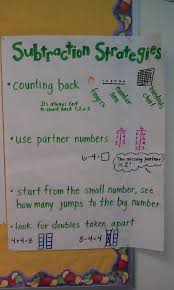 Subtraction Strategies
• counting back
fingers
number line
hundreds chart
It's always best
to count back 1, 2 or 3
• use partner numbers
6-4=□
The missing partner
is 2!
• start from the small number, see
how many jumps to the big number
• look for doubles taken apart
4+4=8
8-4=4